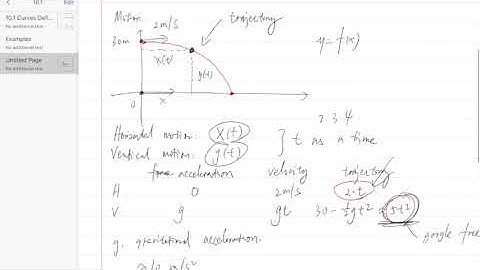 10.1
Edit
10.1 Curves Defi...
No additional text
Examples
No additional text
Untitled Page
No additional text
Motion
2m/s
trajectory
30m
x(t)
y(t)
y=f(x)
0
x
2 3 4
Horizontal motion: x(t)
Vertical motion: y(t)
} t as a time
acceleration velocity trajectory
H 0 2m/s 2·t
V g gt 30-½gt² 5t²
g. gravitational acceleration.
google free
m/s²